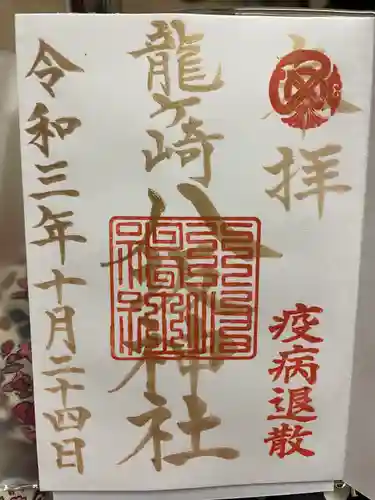 奉拝
疫病退散
龍ケ崎八坂神社
令和三年十月二十四日